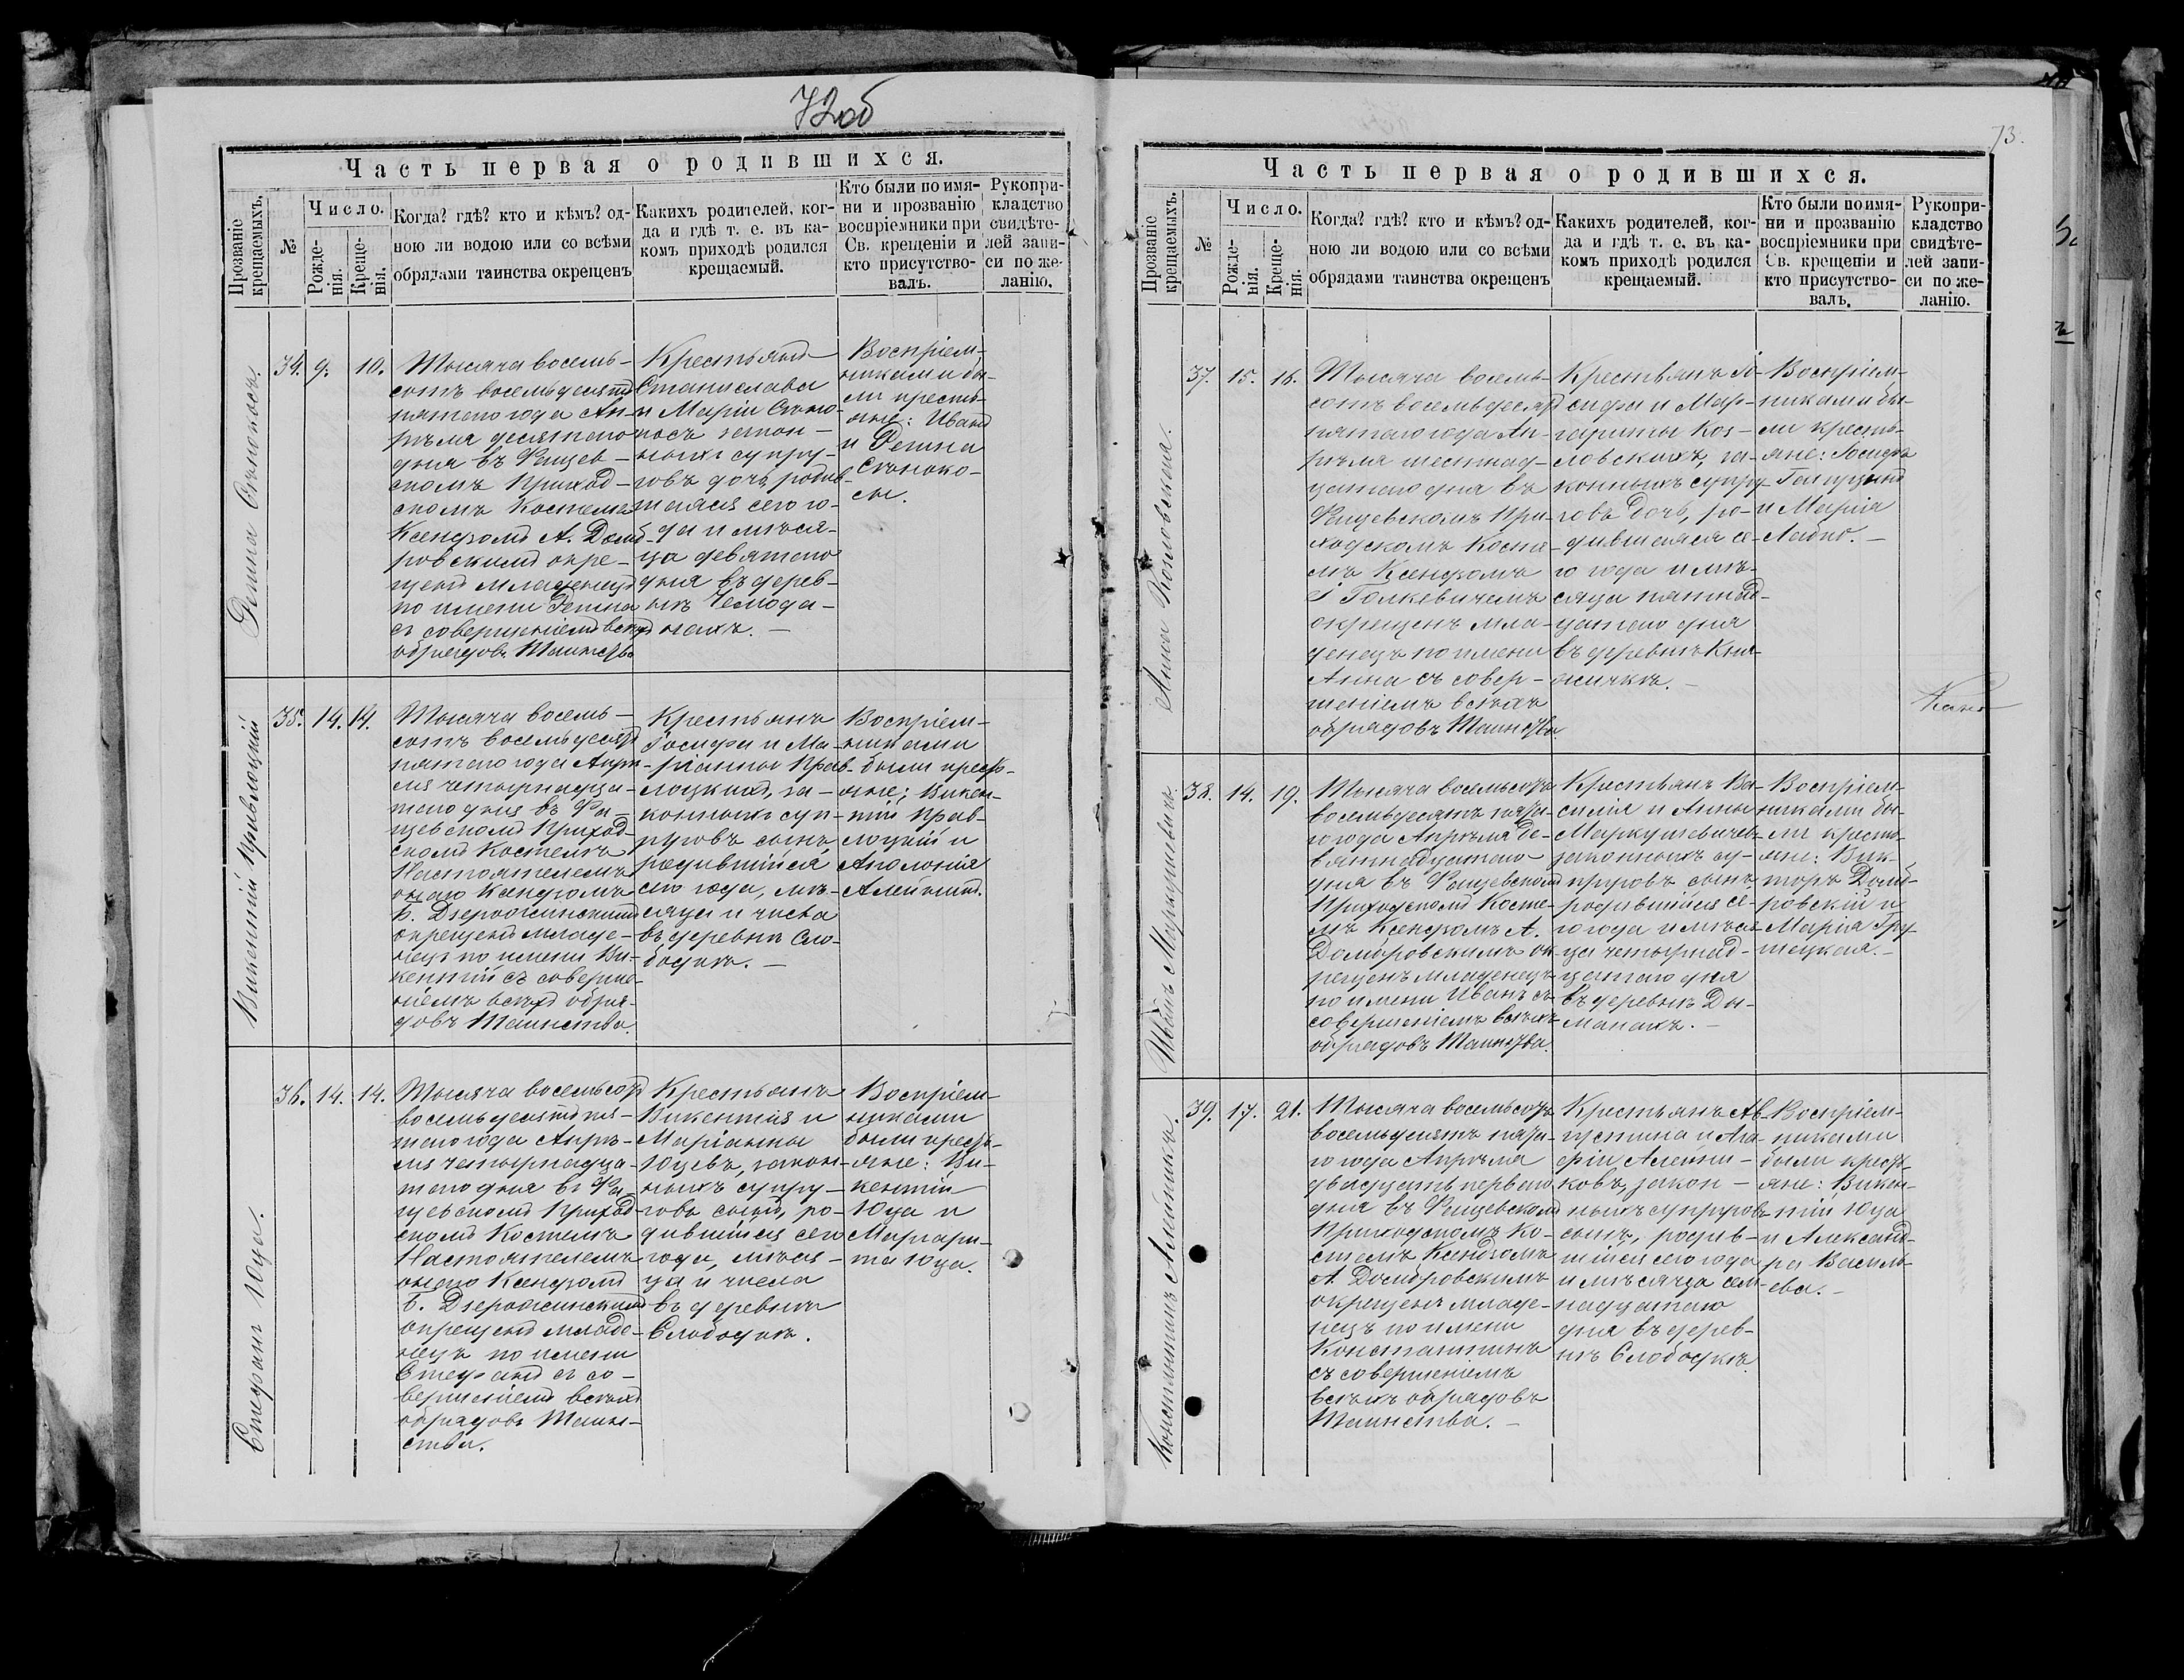 72об
Часть первая о родившихся.
Прозваніе крещаемыхъ.
№
Число.
Рожде-
нія.
Креще-
нія.
Когда? гдѣ? кто и кѣмъ? од-
ною ли водою или со всѣми
обрядами таинства окрещенъ
Какихъ родителей, ког-
да и гдѣ т. е. въ ка-
комъ приходѣ родился
крещаемый.
Кто были по имя-
ни и прозванію
воспріемники при
Св. крещеніи и
кто присутство-
валъ.
Рукопри-
кладство
свидѣте-
лей запи-
си по же-
ланію.
34. 9. 10.
Тысяча восемь-
сотъ восемьдесятъ
пятого года Ап-
рѣля десятого
дня въ Фащев-
скомъ Приход-
скомъ Костелѣ
Ксендзомъ А. Домб-
ровскимъ окре-
щенъ младенецъ
по имени
съ совершеніемъ всѣхъ
обрядовъ Таинства
Крестьянъ
Станислава
и Маріи Сѣноко-
посъ закон-
ныхъ супру-
говъ дочь, родив-
шаяся сего го-
да и мѣся-
ца девятого
дня въ дерев-
нѣ Чемода-
нахъ.
Воспріем-
никами бы-
ли кресть-
яне: Иванъ
и
Сѣноко-
сы.
Викентій Привлоцкій
35. 14. 14.
Тысяча восемь-
сотъ восемьдесятъ
пятого года Апрѣ-
ля четырнадца-
того дня въ Фа-
щевскомъ Приход-
скомъ Костелѣ
Настоятелемъ
онаго Ксендзомъ
Б. Дзерожинскимъ
окрещенъ младе-
нецъ по имени Ви-
кентій съ соверше-
ніемъ всѣхъ обря-
довъ Таинства.
Крестьянъ
Іосифа и Ма-
ріанны Прив-
лоцкихъ, за-
конныхъ суп-
руговъ сынъ,
родившійся
сего года, мѣ-
сяца и числа
въ деревнѣ Сло-
бодкѣ.
Воспріем-
никами
были кресть-
яне: Викен-
тій Прив-
лоцкій и
Аполонія
Стефанъ Юца.
36. 14. 14.
Тысяча восемьсотъ
восемьдесятъ пя-
того года Апрѣ-
ля четырнадца-
того дня въ Фа-
щевскомъ Приход-
скомъ Костелѣ
Настоятелемъ
онаго Ксендзомъ
Б. Дзерожинскимъ
окрещенъ младе-
нецъ по имени
Стефанъ съ со-
вершеніемъ всѣхъ
обрядовъ Таин-
ства.
Крестьянъ
Викентія и
Маріанны
Юцевъ, закон-
ныхъ супру-
говъ сынъ, ро-
дившійся сего
года, мѣся-
ца и числа
въ деревнѣ
Слободкѣ.
Воспріем-
никами
были кресть-
яне: Ви-
кентій
Юца и
Маргари-
та Юца.
73.
Часть первая о родившихся.
Прозваніе крещаемыхъ.
№
Число.
Рожде-
нія.
Креще-
нія.
Когда? гдѣ? кто и кѣмъ? од-
ною ли водою или со всѣми
обрядами таинства окрещенъ
Какихъ родителей, ког-
да и гдѣ т. е. въ ка-
комъ приходѣ родился
крещаемый.
Кто были по имя-
ни и прозванію
воспріемники при
Св. крещеніи и
кто присутство-
валъ.
Рукопри-
кладство
свидѣте-
лей запи-
си по же-
ланію.
Анна Козловская.
37. 15. 16.
Тысяча восемь-
сотъ восемьдесятъ
пятого года Ап-
рѣля шестнад-
цатого дня въ
Фащевскомъ При-
ходскомъ Косте-
лѣ Ксендзомъ
окрещенъ мла-
денецъ по имени
Анна съ совер-
шеніемъ всѣхъ
обрядовъ Таинства.
Крестьянъ Іо-
сифа и Мар-
гариты Коз-
ловскихъ, за-
конныхъ супру-
говъ дочь, ро-
дившаяся се-
го года и мѣ-
сяца пятнад-
цатого дня
въ деревнѣ Кня-
жичкѣ.
Воспріем-
никами бы-
ли кресть-
яне: Іосифъ
и Марія
Иванъ Маркушевичъ.
38. 14. 19.
Тысяча восемьсотъ
восемьдесятъ пято-
го года Апрѣля де-
вятнадцатого
дня въ Фащевскомъ
Приходскомъ Косте-
лѣ Ксендзомъ А.
Домбровскимъ ок-
рещенъ младенецъ
по имени Иванъ съ
совершеніемъ всѣхъ
обрядовъ Таинства.
Крестьянъ Ва-
силія и Анны
Маркушевичевъ
законныхъ су-
пруговъ сынъ,
родившійся се-
го года и мѣся-
ца четырнад-
цатого дня
въ деревнѣ Ды-
манахъ.
Воспріем-
никами бы-
ли кресть-
яне: Вик-
торъ Домб-
ровскій и
Марія Гру-
шецкая.
Константинъ Алейникъ.
39. 17. 21.
Тысяча восемьсотъ
восемьдесятъ пято-
го года Апрѣля
двадцать первого
дня въ Фащевскомъ
Приходскомъ Ко-
стелѣ Ксендзомъ
А. Домбровскимъ
окрещенъ младе-
нецъ по имени
Константинъ
съ совершеніемъ
всѣхъ обрядовъ
Таинства.
Крестьянъ Ав-
густина и Ага-
фіи Алейни-
ковъ, закон-
ныхъ супруговъ
сынъ, родив-
шійся сего года
и мѣсяца сем-
надцатого
дня въ дерев-
нѣ Слободкѣ.
Воспріем-
никами
были кресть-
яне: Викен-
тій Юца
и Александ-
ра Василь-
ева.